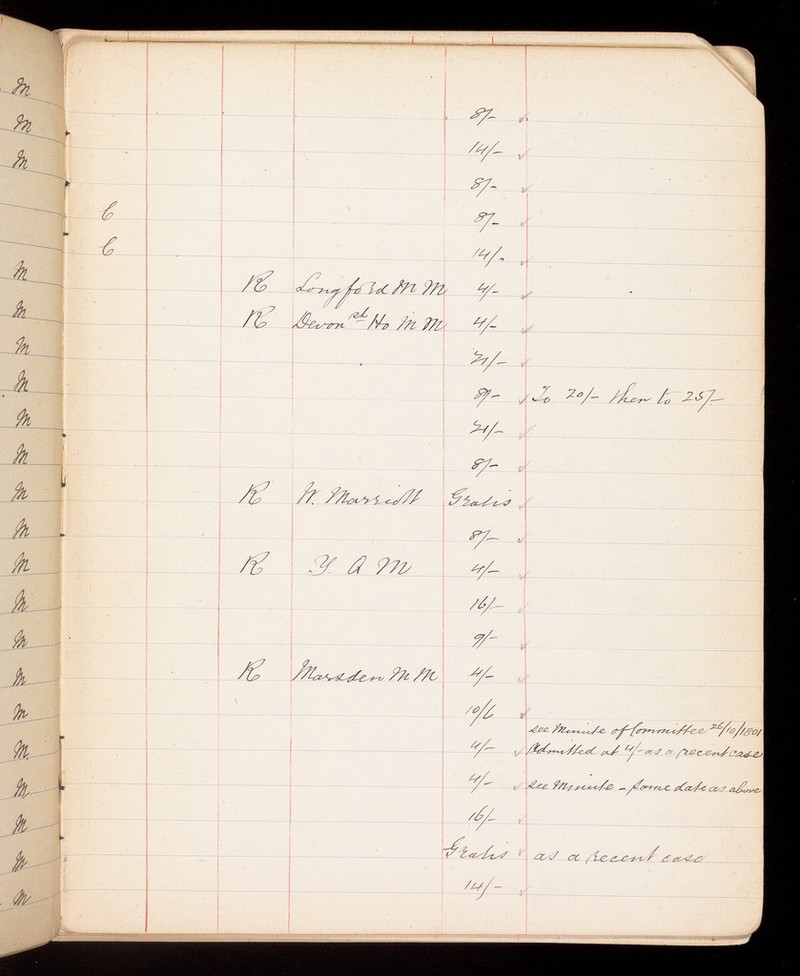 M
M
M
M
M
M
M
M
M
M
M
M
M
M
M
M
M
M
M
M
M
M
8/-
14/-
8/-
C 8/-
C 14/-
R Longford M M 4/-
R Devon sh Ho M M 4/-
21/-
8/- To 20/- then to 25/-
21/-
8/-
R W. Marriott Gratis
8/-
R Y A M 4/-
16/-
9/-
R Marsden M M 4/-
10/6
see Minute of Committee 26/10/1801
4/- Admitted at 4/- as a recent case
4/- see Minute - same date as above
16/-
Gratis as a recent case
14/-